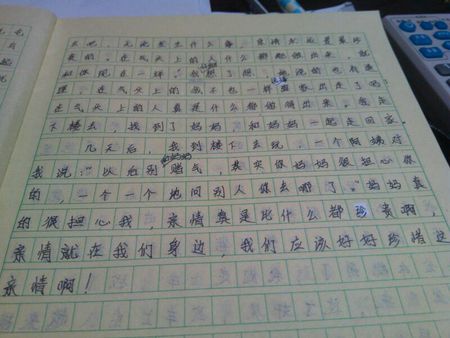 去吧，无论发生什么事，亲情永远是最珍
贵的。在气头上的人什么都能做出来，就
和你现在一样。"我想了想，她说的也有道
理，在气头上的我不也一样离家出走了吗？
在气头上的人真是什么都做得出来，我走
下楼去，找到了妈妈，和妈妈一起走回家。
几天后，我到楼下去玩，一个阿姨对
我说："以后别和妈妈赌气，其实你妈妈很担心你
的，一个一个地问别人你去哪了。"妈妈真
的很担心我，亲情真是比什么都珍贵啊，
亲情就在我们身边，我们应该好好珍惜这
亲情啊！